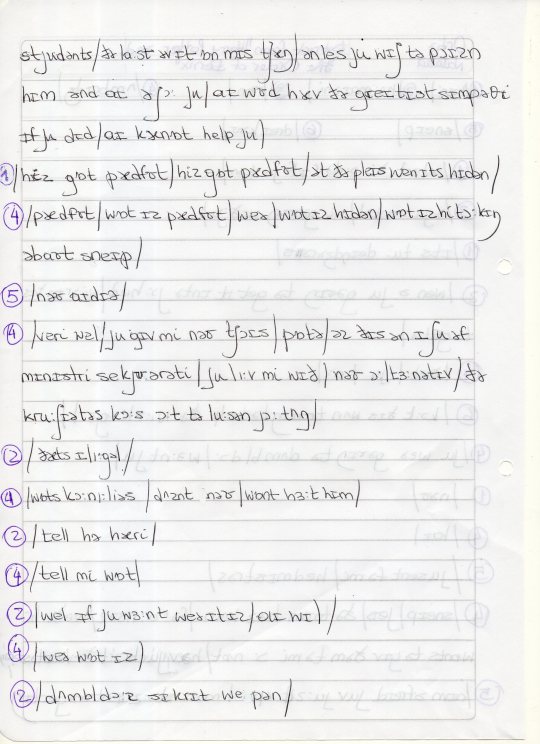 stjudənts/ðə la:st ərɪt ɒn mɪs tʃæŋ/ənles ju wɪʃ tə pɔɪzn
hɪm ənd aɪ əʃɔ: ju/aɪ wʊd hæv ðə greɪtɪst sɪmpəθi
ɪf ju dɪd/aɪ kænɒt help ju/
① /hi:z gɒt pædfʊt/hiz gɒt pædfʊt/ət ðə pleɪs wen ɪts hɪdən/
④ /pædfʊt/wɒt ɪz pædfʊt/weə/wɒt ɪz hɪdən/wɒt ɪz hi tɔ:kɪŋ
əbaʊt sneɪp/
⑤ /nəʊ aɪdɪə/
④ /veri wel/ju gɪv mi nəʊ tʃɔɪs/pɒtə/əz ðɪs ən ɪʃu əf
mɪnɪstri sekjʊərəti/ju li:v mi wɪð/nəʊ ɔ:ltɜ:nətɪv/ðə
kru:ʃɪətəs kɜ:s ɔ:t tə lu:sən jɔ: tʌŋ/
② /ðæts ɪli:gəl/
④ /wɒts kɔ:nɪ:lɪəs/dʌznt nəʊ/wɒnt hɜ:t hɪm/
② /tell hə hæri/
④ /tell mi wɒt/
② /wel ɪf ju wɜ:nt weə ɪt ɪz/olɪ wɪ)/
④ /weə wɒt ɪz)
② /dʌmbldɔ:z sɪkrɪt wepən/